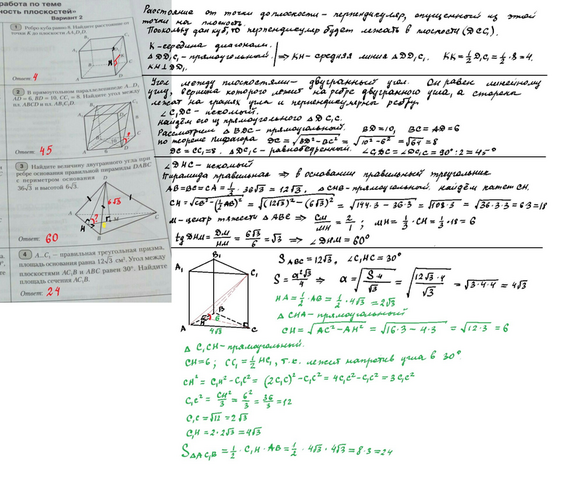 работа по теме
ность плоскостей»
Вариант 2
1 Ребро куба равно 8. Найдите расстояние от
точки K до плоскости
Ответ: 4
2 В прямоугольном параллелепипеде A...D₁
AD = 6, BD = 10, CC₁ = 8. Найдите угол между
пл. ABCD и пл. AB₁C₁D.
Ответ: 45
3 Найдите величину двугранного угла при
ребре основания правильной пирамиды DABC
с периметром основания
36√3 и высотой 6√3.
6√3
Ответ: 60
4 A...C₁ – правильная треугольная призма,
площадь основания равна 12√3 см². Угол между
плоскостями AC₁B и ABC равен 30°. Найдите
площадь сечения AC₁B.
Ответ: 24
Расстояние от точки до плоскости - перпендикуляр, опущенный из этой
точки на плоскость.
Поскольку дан куб, то перпендикуляр будет лежать в плоскости (DCC₁).
K - середина диагонали.
△DD₁C₁ - прямоугольный. ⇒ KH - средняя линия △DD₁C₁
KH ⊥ DD₁.
Угол между плоскостями - двугранный угол. Он равен линейному
углу, вершина которого лежит на ребре двугранного угла, а стороны
лежат на гранях угла и перпендикулярны ребру.
∠C₁DC - искомый.
Найдём его из прямоугольного △DC₁C.
Рассмотрим △BDC - прямоугольный. BD=10, BC=AD=6
по теореме Пифагора DC = √BD²-BC² = √10²-6² = √64 = 8
DC = CC₁ = 8. △DC₁C - равнобедренный. ∠C₁DC = ∠DC₁C = 90°:2 = 45°
∠DHC - искомый
Пирамида правильная ⇒ в основании правильный треугольник
△CHB - прямоугольный. найдём катет CH.
M - центр тяжести △ABC ⇒ CM/MH = 2/1; MH = 1/3·CH = 1/3·18 = 6
tg DHM = DM/HM = 6√3/6 = √3 ⇒ ∠DHM = 60°
S ABC = 12√3, ∠C₁HC = 30°
S = a²√3/4 ⇒ a = √S·4/√3 = √12√3·4/√3 = √3·4·4 = 4√3
HA = 1/2·AB = 1/2·4√3 = 2√3
△CHA - прямоугольный
CH = √AC²-AH² = √16·3-4·3 = √12·3 = 6
B₁
A₁
C₁
B
H
6
A
4√3
C
△C₁CH - прямоугольный.
CH=6; CC₁ = 1/2 HC₁, т.к. лежит напротив угла в 30°
CH² = C₁H² - C₁C² = (2C₁C)² - C₁C² = 4C₁C² - C₁C² = 3C₁C²
C₁C² = CH²/3 = 6²/3 = 36/3 = 12
C₁C = √12 = 2√3
C₁H = 2·2√3 = 4√3
S△AC₁B = 1/2·C₁H·AB = 1/2·4√3·4√3 = 8·3 = 24